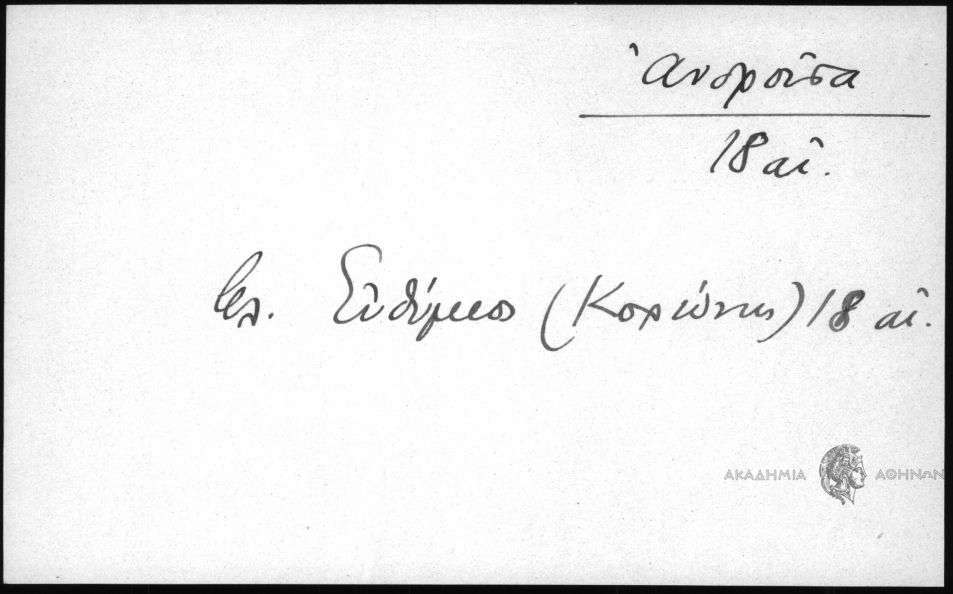 Ἀνδροῦσα
18 αἰ.
βλ. Εὐθύμιος (Κορώνης) 18 αἰ.
ΑΚΑΔΗΜΙΑ ΑΘΗΝΩΝ